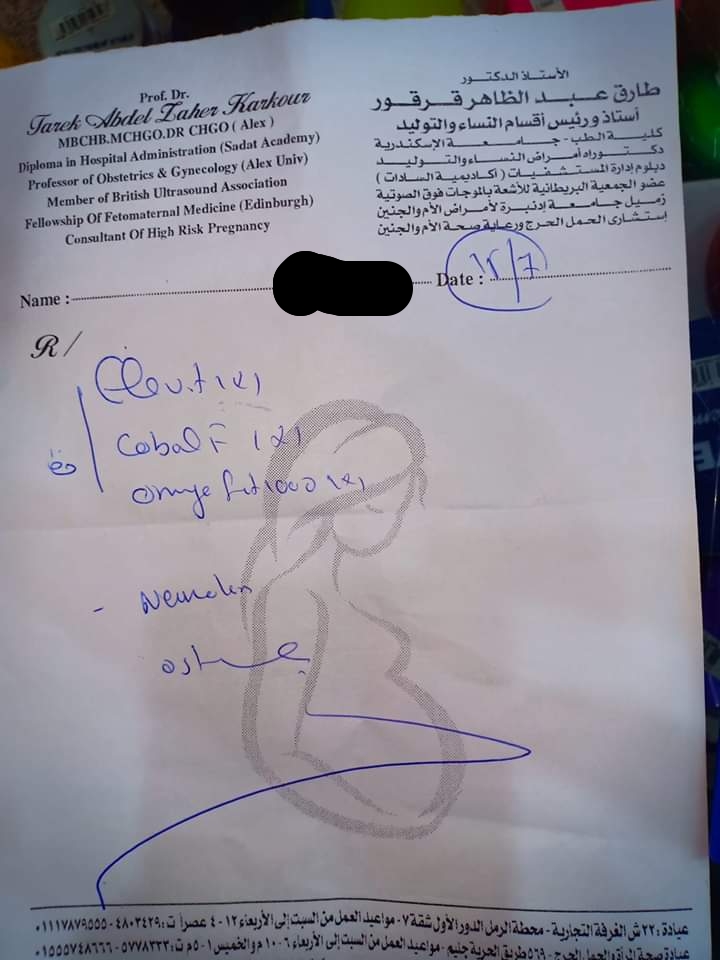 Prof. Dr.
Tarek Abdel Zaher Karkour
MBCHB.MCHGO.DR CHGO ( Alex )
Diploma in Hospital Administration (Sadat Academy)
Professor of Obstetrics & Gynecology (Alex Univ)
Member of British Ultrasound Association
Fellowship Of Fetomaternal Medicine (Edinburgh)
Consultant Of High Risk Pregnancy
الأستاذ الدكتور
طارق عبد الظاهر قرقور
أستاذ ورئيس أقسام النساء والتوليد
كلية الطب - جامعة الإسكندرية
دكتوراه أمراض النساء والتوليد
دبلوم إدارة المستشفيات ( أكاديمية السادات )
عضو الجمعية البريطانية للأشعة بالموجات فوق الصوتية
زميل جامعة إدنبرة لأمراض الأم والجنين
إستشارى الحمل الحرج ورعاية صحة الأم والجنين
Name :
Date : ١٢/٧
R/
Cobal F 1x1
1000 1x1
عيادة : ٢٢ ش الغرفة التجارية - محطة الرمل الدور الأول شقة ٧ - مواعيد العمل من السبت إلى الأربعاء ١٢ - ٤ عصراً ت : ٤٨٠٣٤٢٩ - ٠١١١٧٨٧٩٥٥٥
عيادة صحة المرأة والحمل الحرج - ٥٦٩ طريق الحرية جليم - مواعيد العمل من السبت إلى الأربعاء ٦ - ١٠ م والخميس ١ - ٥ م ت : ٥٧٧٨٣٣٣ - ٠١٥٥٥٧٤٨٦٦٦